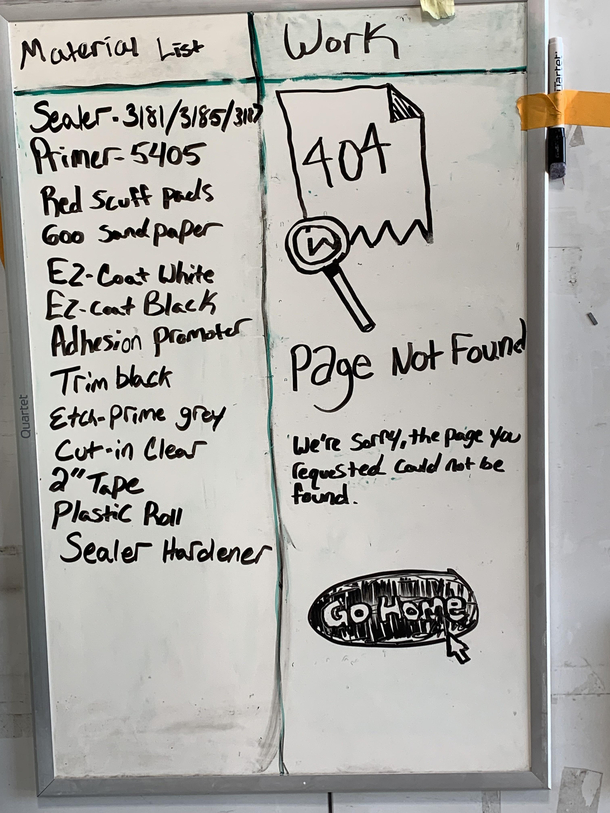 Material List
Sealer-3181/3185/3187
Primer-5405
Red Scuff pads
600 Sandpaper
EZ-Coat White
EZ-Coat Black
Adhesion promoter
Trim black
Etch-prime grey
Cut-in Clear
2" Tape
Plastic Roll
Sealer Hardener
Work
404
Page Not Found
We're Sorry, the page you
requested could not be
found.
Go Home
Quartet
Quartet